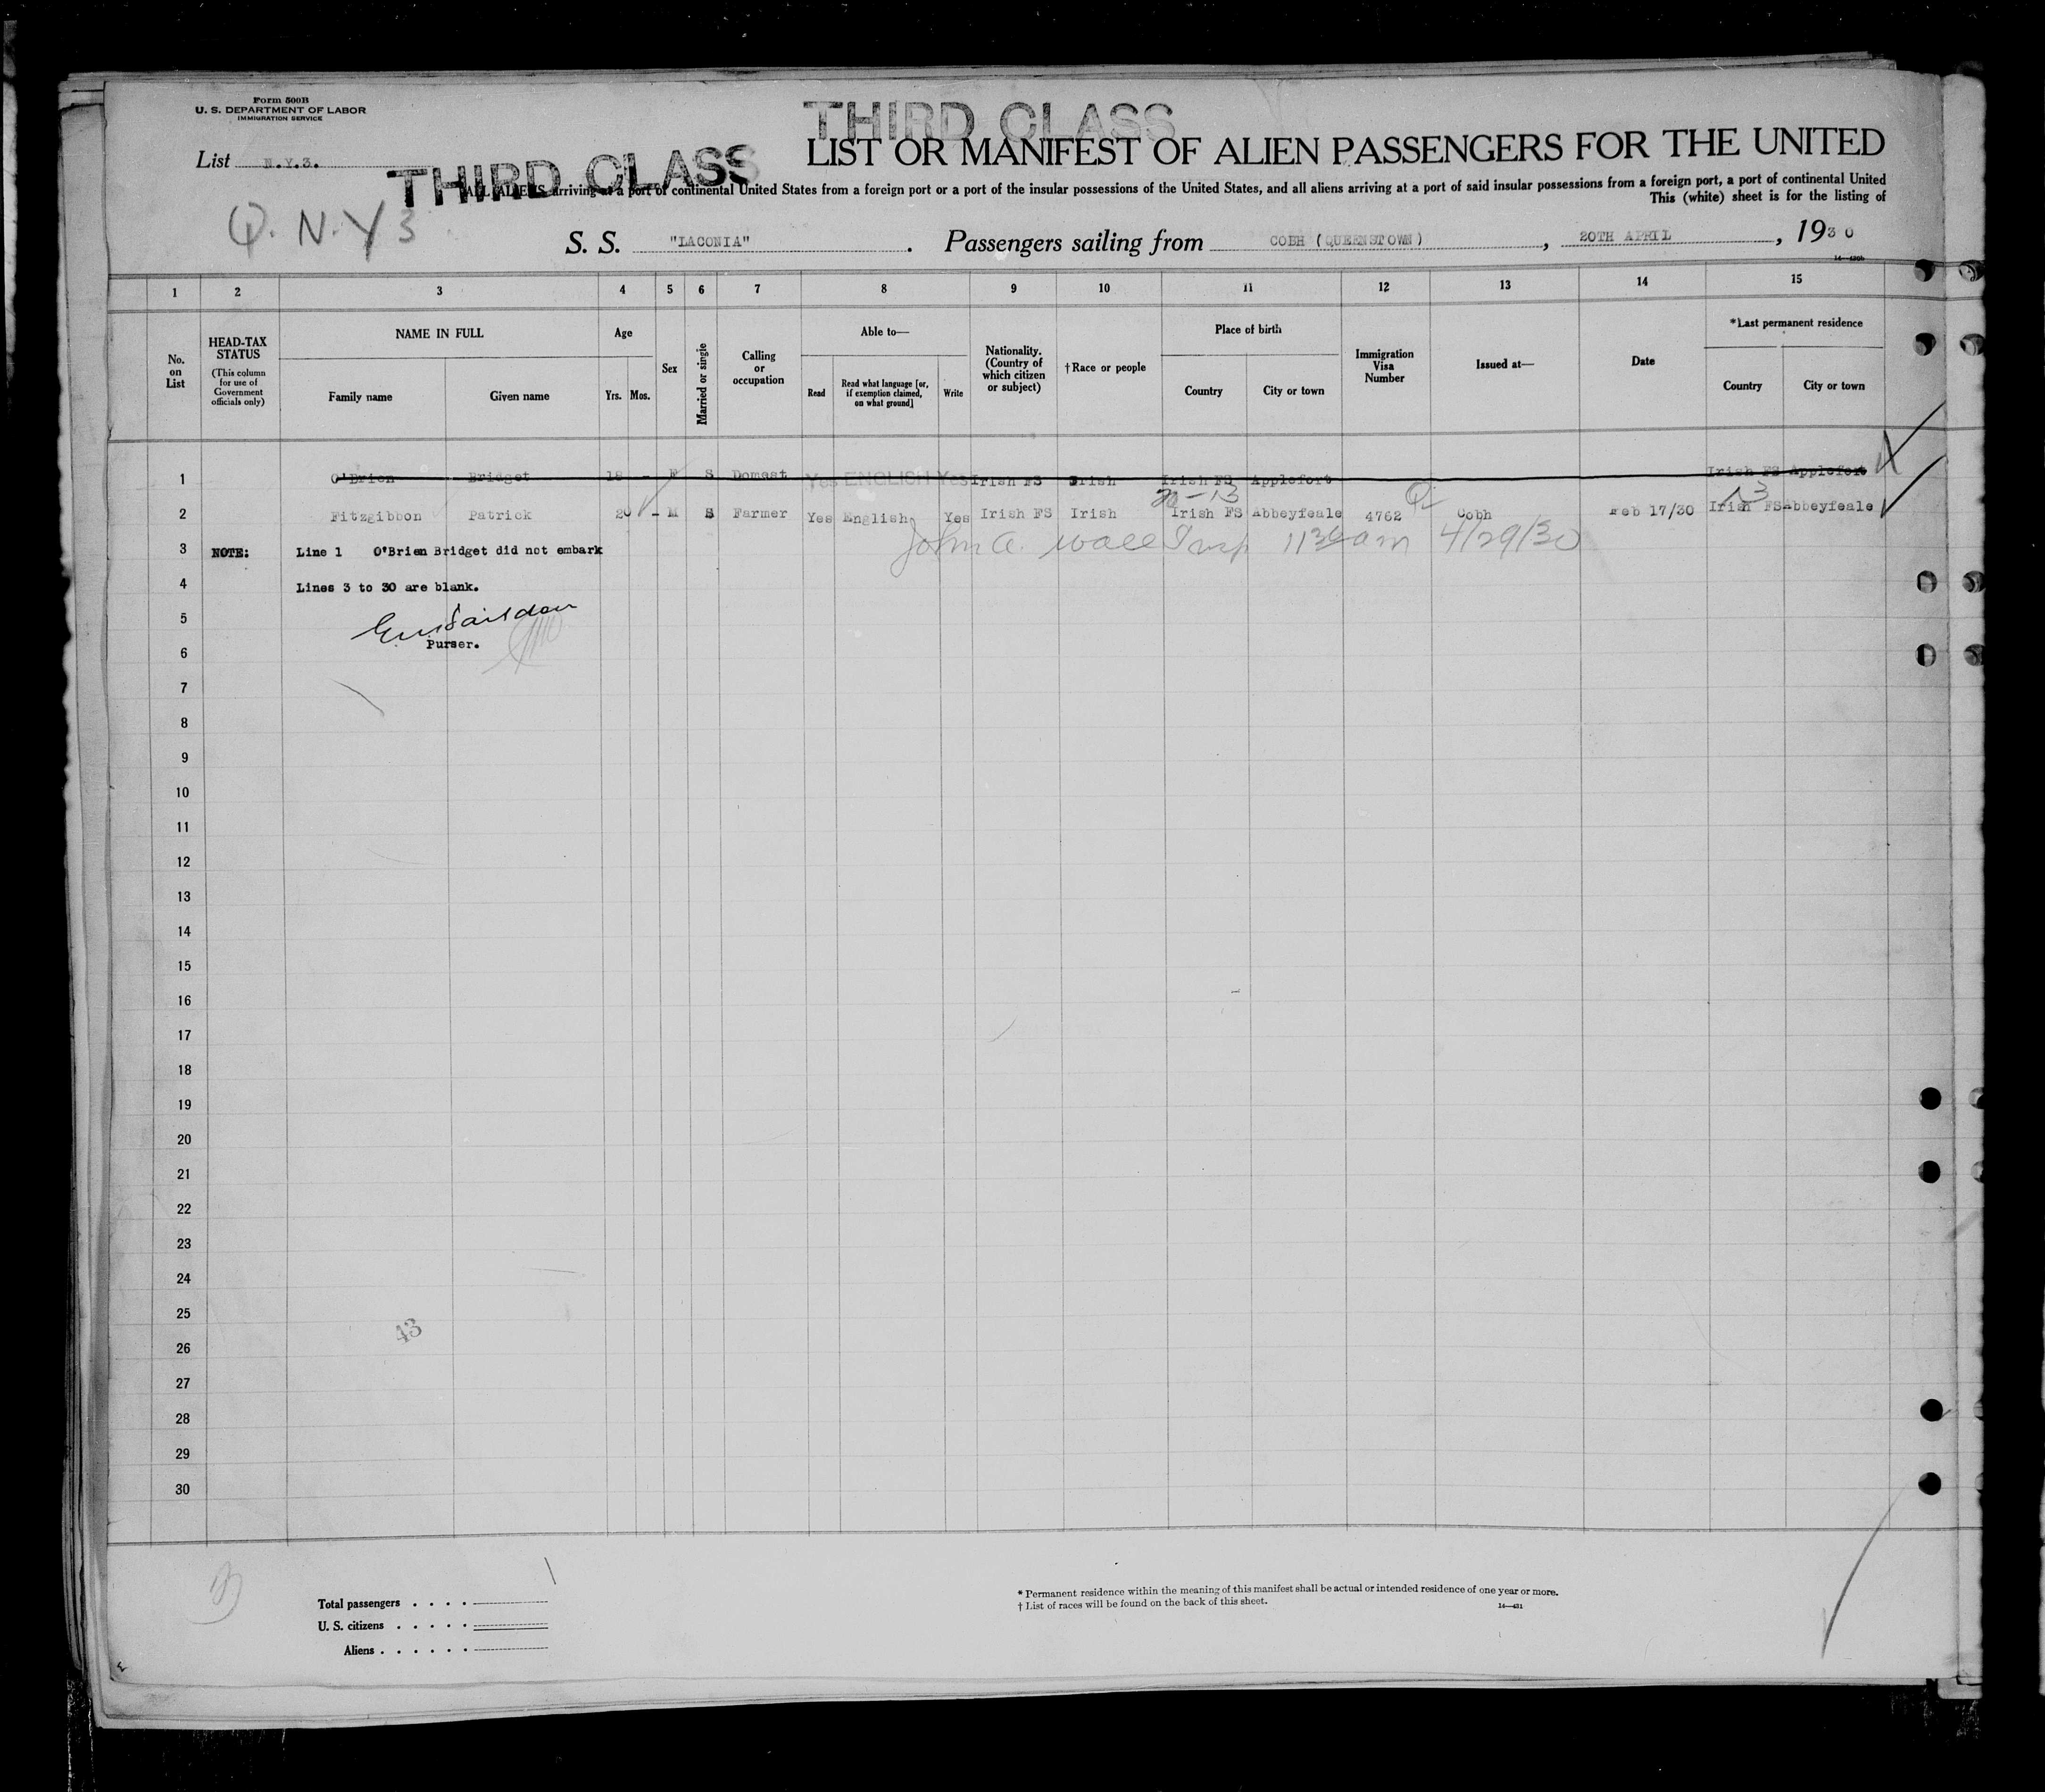 Form 500B
U. S. DEPARTMENT OF LABOR
IMMIGRATION SERVICE
THIRD CLASS
List N.Y.3.
THIRD CLASS
LIST OR MANIFEST OF ALIEN PASSENGERS FOR THE UNITED
ALL ALIENS arriving at a port of continental United States from a foreign port or a port of the insular possessions of the United States, and all aliens arriving at a port of said insular possessions from a foreign port, a port of continental United
This (white) sheet is for the listing of
Q. N.Y 3
S. S. "LACONIA". Passengers sailing from COBH (QUEENSTOWN), 20TH APRIL, 1930
1 2 3 4 5 6 7 8 9 10 11 12 13 14 15
No. on List
HEAD-TAX STATUS
(This column for use of Government officials only)
NAME IN FULL
Family name Given name
Age
Yrs. Mos.
Sex
Married or single
Calling or occupation
Able to—
Read
Read what language [or, if exemption claimed, on what ground]
Write
Nationality. (Country of which citizen or subject)
†Race or people
Place of birth
Country City or town
Immigration Visa Number
Issued at—
Date
*Last permanent residence
Country City or town
1 O'Brien Bridget 18 - F S Domest Yes ENGLISH Yes Irish FS Irish Irish FS Applefort Irish FS Applefort
2 Fitzgibbon Patrick 20 - M S Farmer Yes English Yes Irish FS Irish Irish FS Abbeyfeale 4762 Cobh Feb 17/30 Irish FS Abbeyfeale
3 NOTE: Line 1 O'Brien Bridget did not embark John A. Wall Insp 1130 am 4/29/30
4 Lines 3 to 30 are blank.
5
Purser.
6
7
8
9
10
11
12
13
14
15
16
17
18
19
20
21
22
23
24
25
43
26
27
28
29
30
Total passengers . . . .
U. S. citizens . . . . .
Aliens . . . . . .
* Permanent residence within the meaning of this manifest shall be actual or intended residence of one year or more.
† List of races will be found on the back of this sheet.
14—431